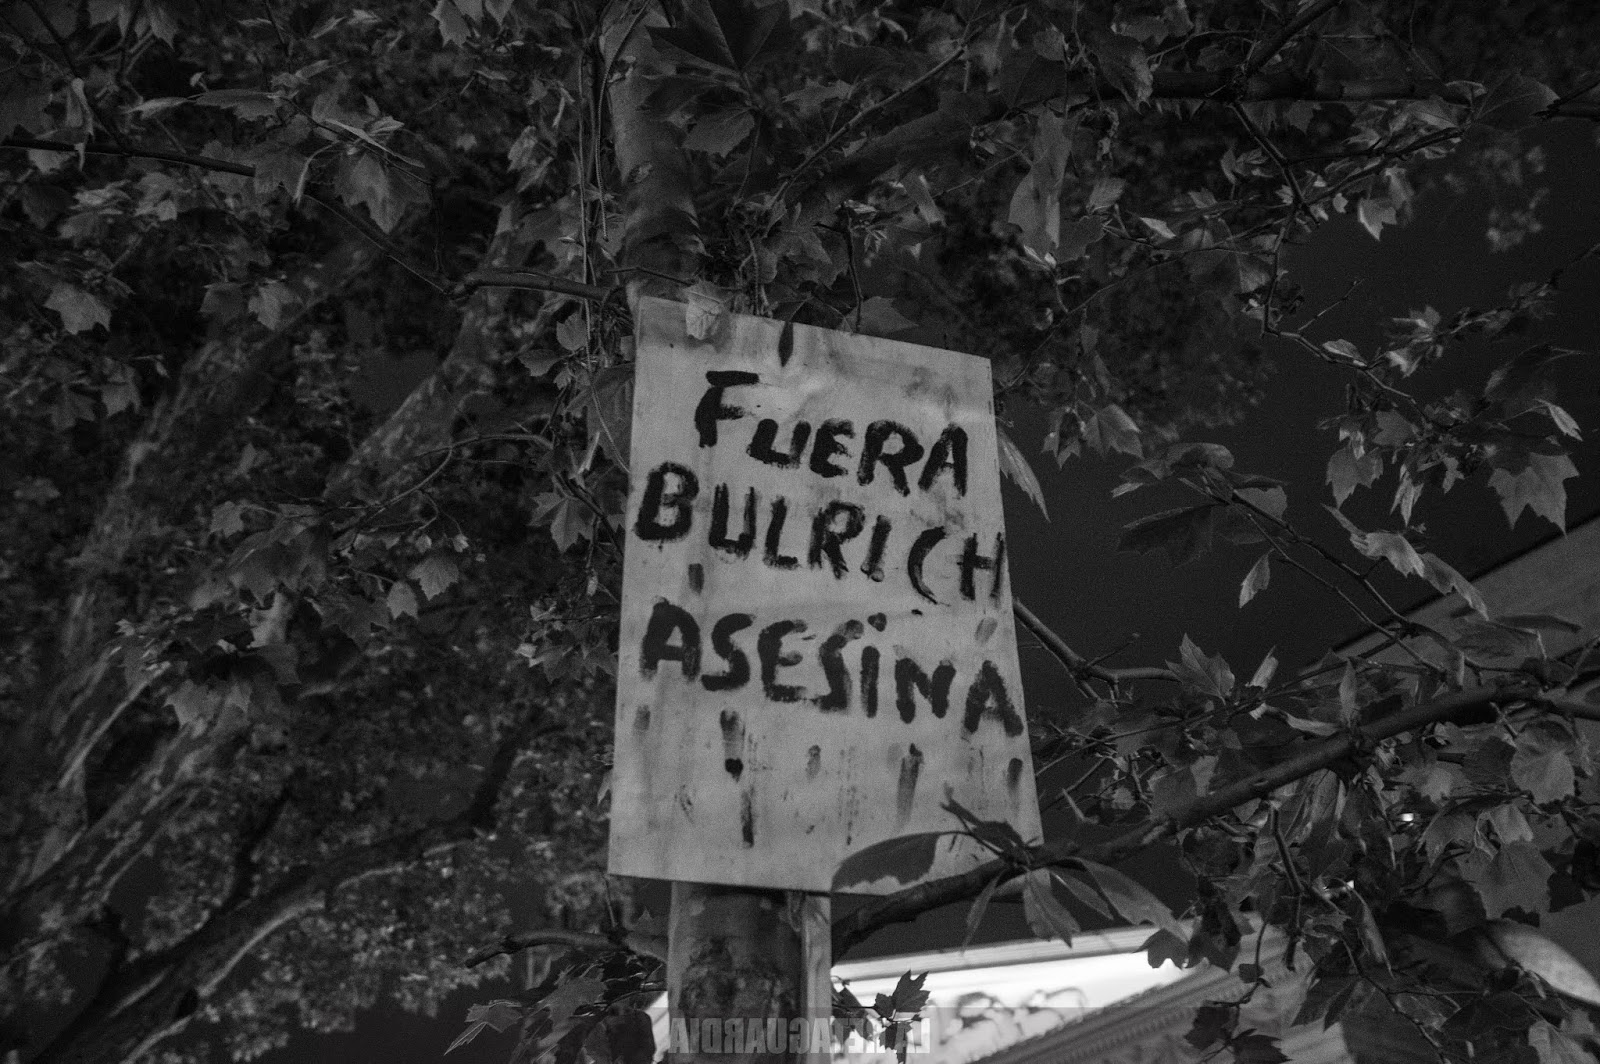 FUERA
BULRICH
ASESiNA
LA RETAGUARDIA